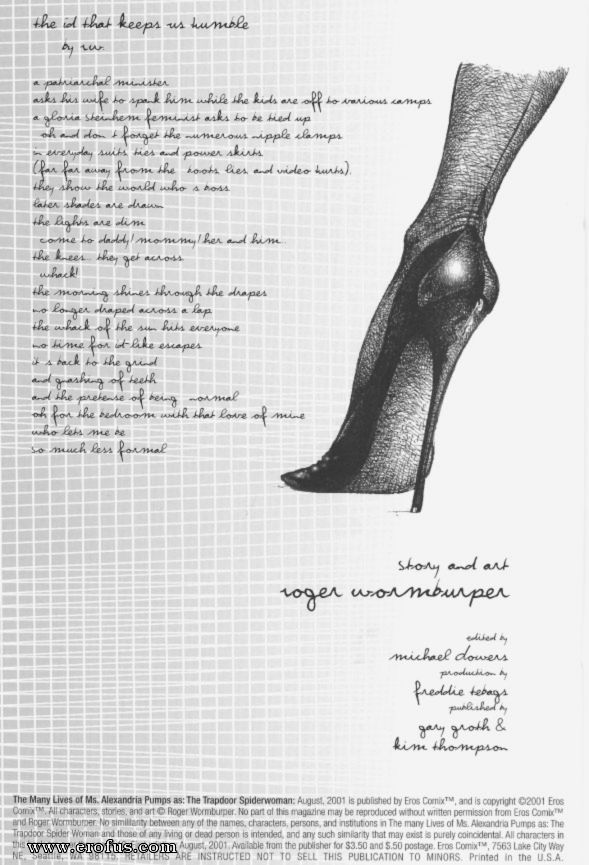 the id that keeps us humble
by rw.
a patriarchal minister
asks his wife to spank him while the kids are off to various camps
a gloria steinhem feminist asks to be tied up
oh and don t forget the numerous nipple clamps
in everyday suits ties and power skirts
(far far away from the roots lies and video hurts).
they show the world who s boss
later shades are drawn
the lights are dim
come to daddy/mommy/her and him...
the knees... they get across
whack!
the morning shines through the drapes
no longer draped across a lap
the whack of the sun hits everyone
no time for id-like escapes
it s back to the grind
and gnashing of teeth
and the pretense of being normal
oh for the bedroom with that love of mine
who lets me be
so much less formal
story and art
roger wormburper
edited by
michael dowers
production by
freddie tebags
published by
gary groth &
kim thompson
The Many Lives of Ms. Alexandria Pumps as: The Trapdoor Spiderwoman: August, 2001 is published by Eros Comix™, and is copyright ©2001 Eros
Comix™. All characters, stories, and art © Roger Wormburper. No part of this magazine may be reproduced without written permission from Eros Comix™
and Roger Wormburper. No similiarity between any of the names, characters, persons, and institutions in The many Lives of Ms. Alexandria Pumps as: The
Trapdoor Spider Woman and those of any living or dead person is intended, and any such similarity that may exist is purely coincidental. All characters in
this August, 2001. Available from the publisher for $3.50 and $.50 postage. Eros Comix™, 7563 Lake City Way
NE, Seattle, WA 98115. RETAILERS ARE INSTRUCTED NOT TO SELL THIS PUBLICATION TO MINORS. Printed in the U.S.A.
www.erofus.com